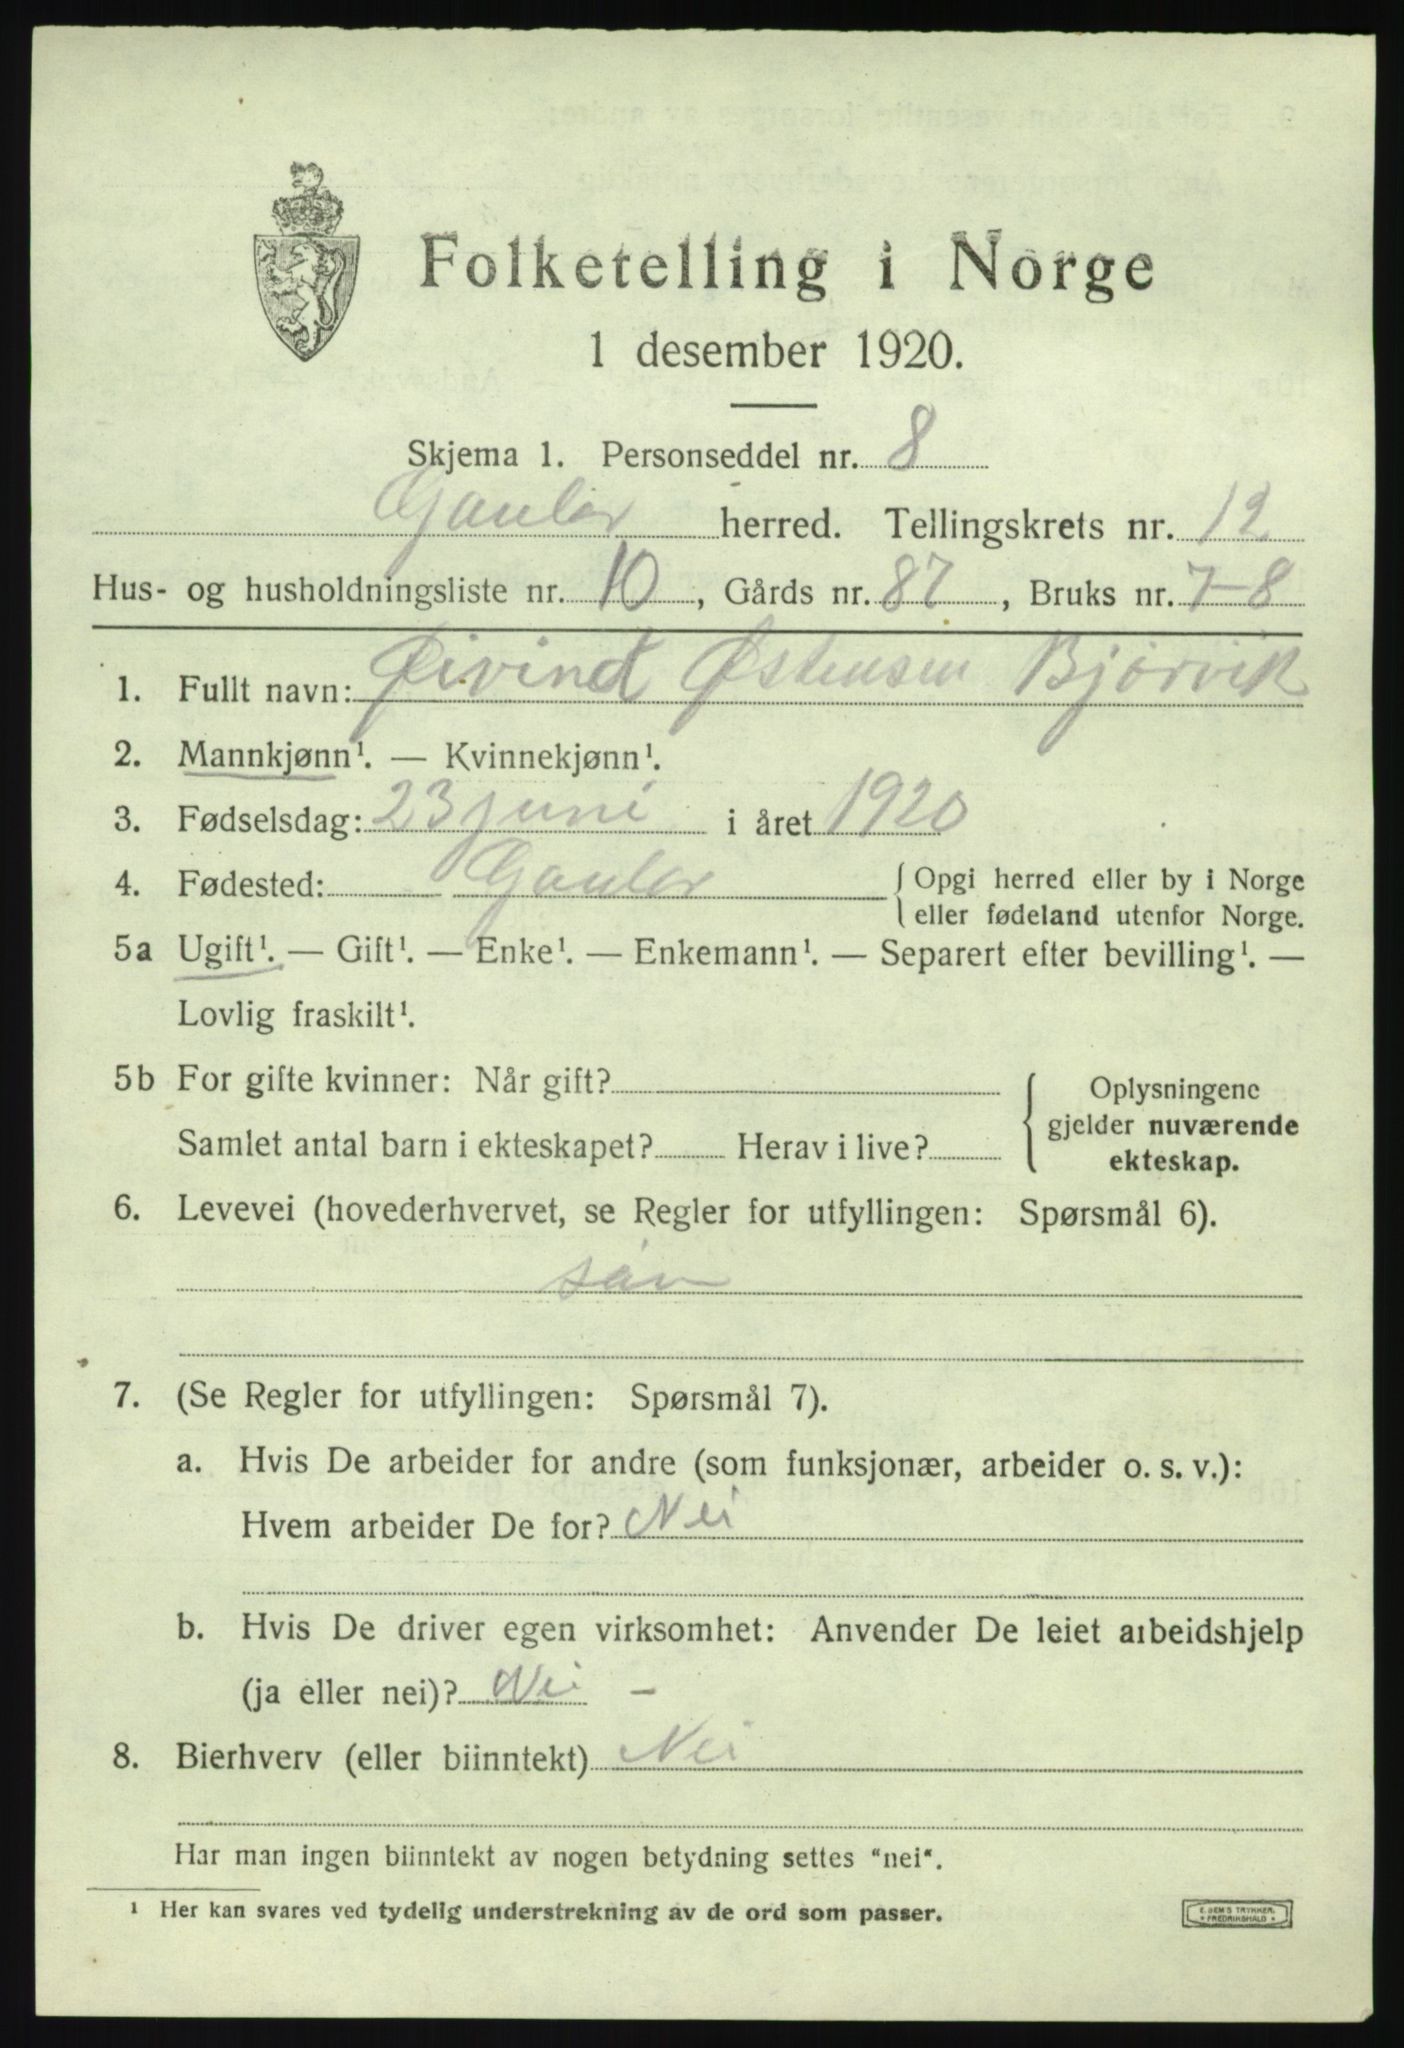 Folketelling i Norge
1 desember 1920.
Skjema 1. Personseddel nr. 8
Gaular herred. Tellingskrets nr. 12
Hus- og husholdningsliste nr. 10, Gårds nr. 87, Bruks nr. 7-8
1. Fullt navn: Øivind Østensen Bjørvik
2. Mannkjønn¹. — Kvinnekjønn¹.
3. Fødselsdag: 23 juni i året 1920
4. Fødested: Gaular { Opgi herred eller by i Norge
eller fødeland utenfor Norge.
5a Ugift¹. — Gift¹. — Enke¹. — Enkemann¹. — Separert efter bevilling¹. —
Lovlig fraskilt¹.
5b For gifte kvinner: Når gift? { Oplysningene
gjelder nuværende
Samlet antal barn i ekteskapet? Herav i live? ekteskap.
6. Levevei (hovederhvervet, se Regler for utfyllingen: Spørsmål 6).
søn
7. (Se Regler for utfyllingen: Spørsmål 7).
a. Hvis De arbeider for andre (som funksjonær, arbeider o. s. v.):
Hvem arbeider De for? Nei
b. Hvis De driver egen virksomhet: Anvender De leiet arbeidshjelp
(ja eller nei)? Nei —
8. Bierhverv (eller biinntekt) Nei
Har man ingen biinntekt av nogen betydning settes "nei".
¹ Her kan svares ved tydelig understrekning av de ord som passer.
E. SEM'S TRYKKERI
FREDRIKSHALD